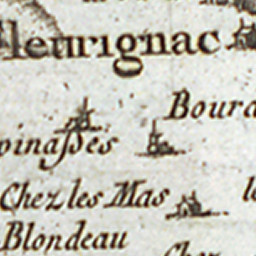 leurignac
Bour
pinasses
Chez les Mas
Blondeau
Chez